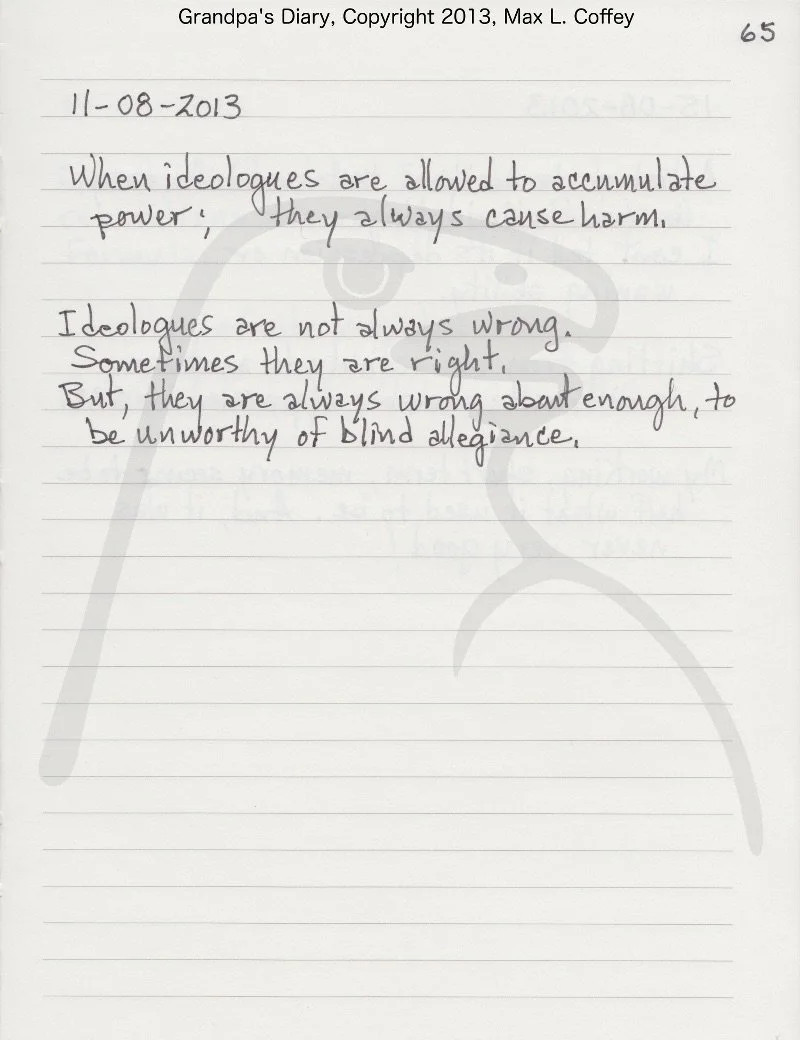 Grandpa's Diary, Copyright 2013, Max L. Coffey
65
11-08-2013
When ideologues are allowed to accumulate
power; they always cause harm.
Ideologues are not always wrong.
Sometimes they are right.
But, they are always wrong about enough, to
be unworthy of blind allegiance.